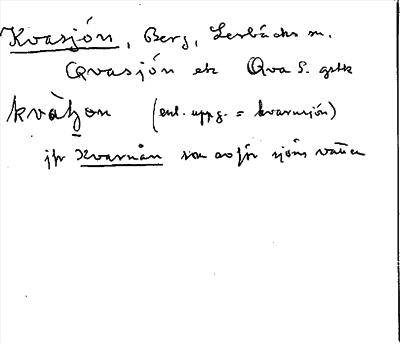 Kvasjön, Berg, Lerbäcks sn.
Qvasjön ek Qva S. gstk
kvàʒon (enl. uppg. = kvarnsjön)
jfr Kvarnån som avför sjöns vatten